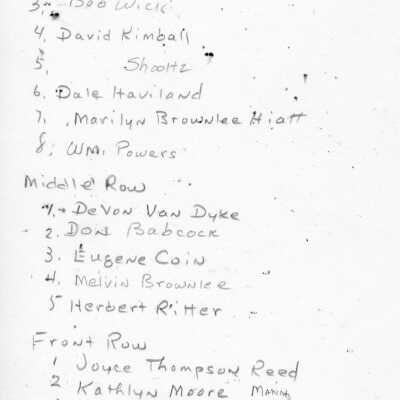 3. Bob Wick
4. David Kimball
5. Shooltz
6. Dale Haviland
7. Marilyn Brownlee Hiatt
8. Wm. Powers
Middle Row
1. DeVon Van Dyke
2. Don Babcock
3. Eugene Coin
4. Melvin Brownlee
5 Herbert Ritter
Front Row
1 Joyce Thompson Reed
2 Kathlyn Moore